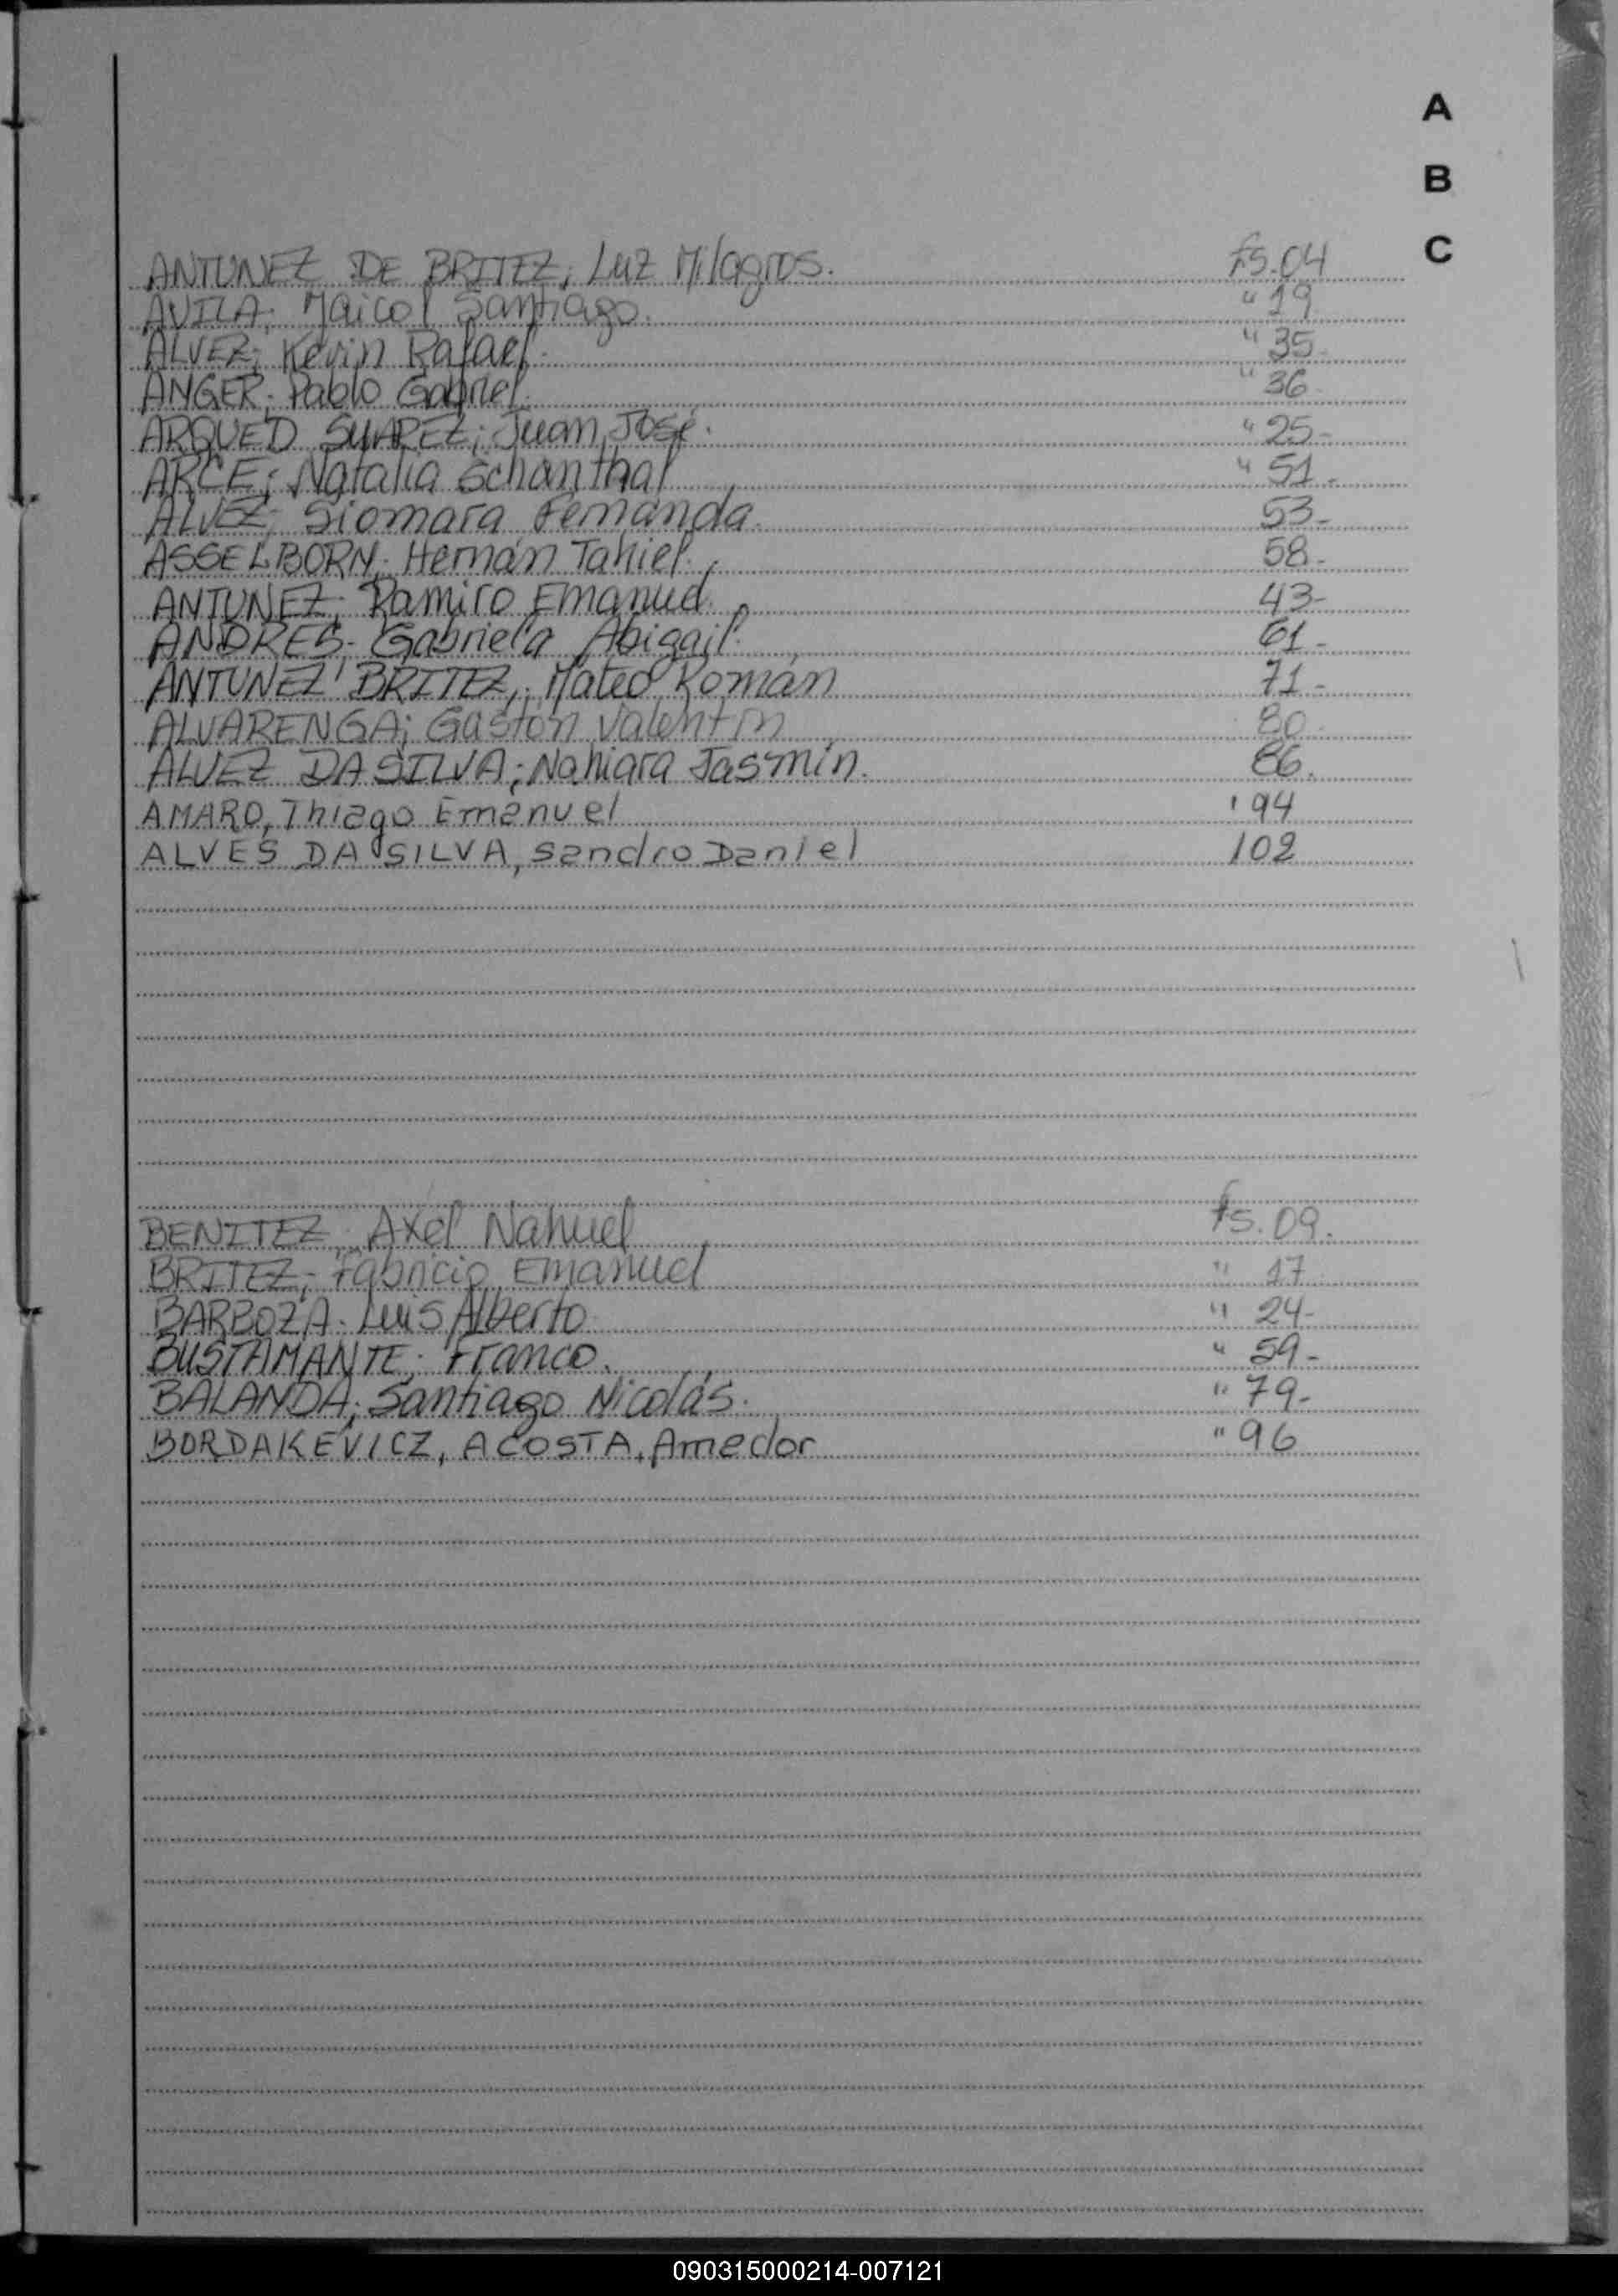 A
B
C
ANTUNEZ DE BRITEZ; Luz Milagros. fs. 04
AVILA; Maicol Santiago. " 19
ALVEZ; Kevin Rafael. " 35
ANGER; Pablo Gabriel. " 36
ARQUED SUAREZ; Juan José. " 25-
ARCE; Natalia Schanthal " 51-
ALVEZ; Siomara Fernanda. 53-
ASSELBORN; Hernán Tahiel. 58-
ANTUNEZ; Ramiro Emanuel. 43-
ANDRES- Gabriela Abigail. 61-
ANTUNEZ BRITEZ; Mateo Román 71-
ALVARENGA; Gastón Valentín 80
ALVEZ DA SILVA; Nahiara Jasmín. 86.
AMARO, Thiago Emanuel ' 94
ALVES DA SILVA, Sandro Daniel 102
BENITEZ; Axel Nahuel fs. 09.
BRITEZ; Fabricio Emanuel " 17
BARBOZA. Luis Alberto " 24-
BUSTAMANTE; Franco. " 59-
BALANDA; Santiago Nicolás. " 79-
BORDAKEVICZ, ACOSTA, Amedor " 96
090315000214-007121